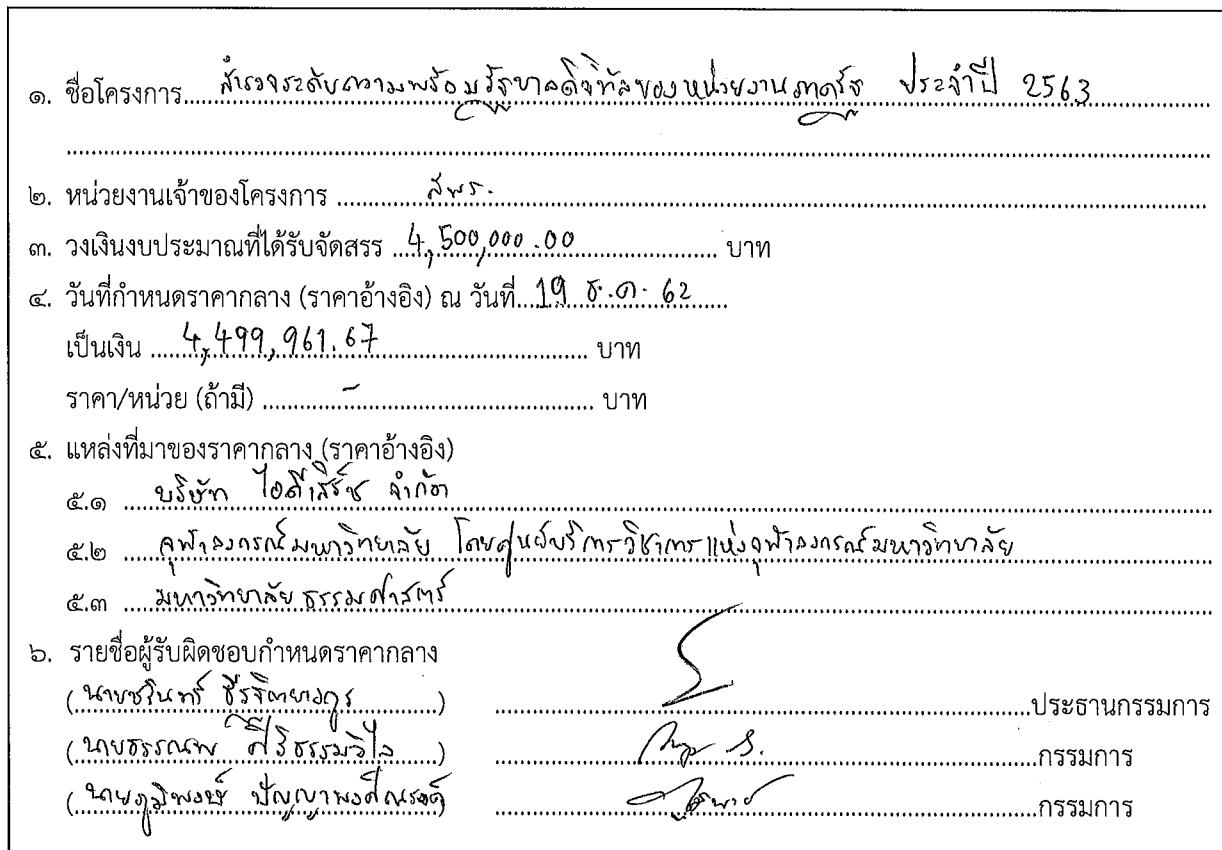 ๑. ชื่อโครงการ.... สำรวจระดับความพร้อมรัฐบาลดิจิทัลของหน่วยงานภาครัฐ ประจำปี 2563
๒. หน่วยงานเจ้าของโครงการ ........ สพร.
๓. วงเงินงบประมาณที่ได้รับจัดสรร ... 4,500,000.00 ........ บาท
๔. วันที่กำหนดราคากลาง (ราคาอ้างอิง) ณ วันที่... 19 ธ.ค. 62
เป็นเงิน ..... 4,499,961.67 ........ บาท
ราคา/หน่วย (ถ้ามี) ........ - ........ บาท
๕. แหล่งที่มาของราคากลาง (ราคาอ้างอิง)
๕.๑ บริษัท ไอดีเสิร์ช จำกัด
๕.๒ จุฬาลงกรณ์มหาวิทยาลัย โดยศูนย์บริการวิชาการแห่งจุฬาลงกรณ์มหาวิทยาลัย
๕.๓ มหาวิทยาลัยธรรมศาสตร์
๖. รายชื่อผู้รับผิดชอบกำหนดราคากลาง
(นายชรินทร์ ธีรฐิตยางกูร) ........ ประธานกรรมการ
(นายธรรณพ ศิริธรรมวิไล) ........ กรรมการ
(นายภูมิพงษ์ ปัญญาพงศ์) ........ กรรมการ